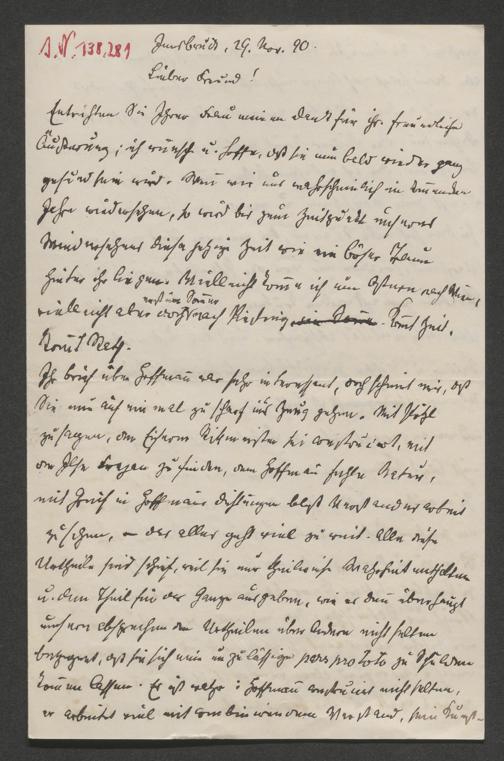 I.N. 138,281
Innsbruck, 29. Nov. 90.
Lieber Freund!
Entrichten Sie Ihrer Frau meinen Dank für ihre freundliche
Äußerung; ich wünsche u. hoffe, daß sie nun bald wieder ganz
gesund sein wird. Wenn wir uns wahrscheinlich im kommenden
Jahre wiedersehen, so wird bis zum Zeitpunkt unseres
Wiedersehens diese jetzige Zeit wie ein böser Traum
hinter ihr liegen. Vielleicht komme ich um Ostern nach Wien,
vielleicht aber doch erst im Sommer nach . Kommt Zeit,
kommt Rath.
Ihr Brief über Hoffmann war sehr interessant, doch scheint mir, daß
Sie nun auf einmal zu scharf ins Zeug gehen. Mit
zu sagen, der Eiserne Rittmeister sei construiert, mit
der Ilse Frapan zu finden, dem Hoffmann fehle Natur,
mit in Hoffmanns Dichtungen bloß Verstandesarbeit
zu sehen, – das alles geht viel zu weit. Alle diese
Urtheile sind schief, weil sie nur theilweise Wahrheit enthalten
u. den Theil für das Ganze ausgeben, wie es denn überhaupt
unseren absprechenden Urtheilen über Andere nicht selten
begegnet, daß sie sich eine unzulässige pars pro toto zu Schulden
kommen lassen. Es ist wahr: Hoffmann construiert nicht selten,
er arbeitet viel mit combinierendem Verstand, sein Kunst-